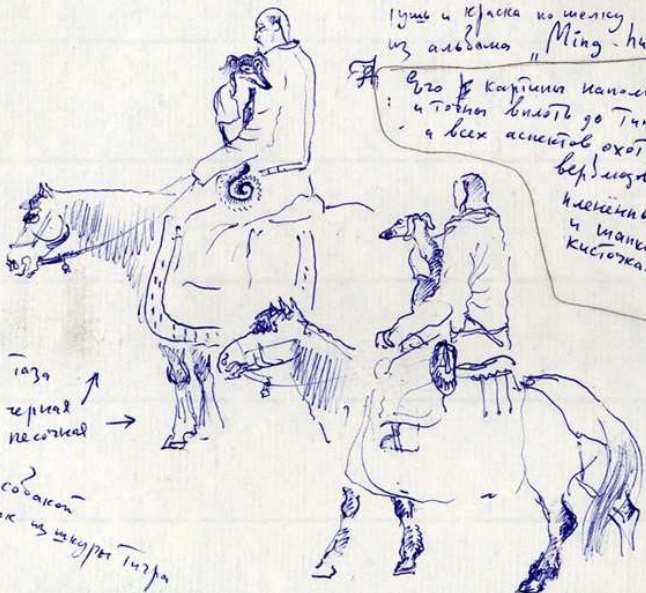 тушь и краска по шелку
из альбома „Ming-hu
Его картины напол
и точны вплоть до
и всех аспектов охот
и шапк
кисточка
таза
черная
песочная
собакой
из шкуры тигра